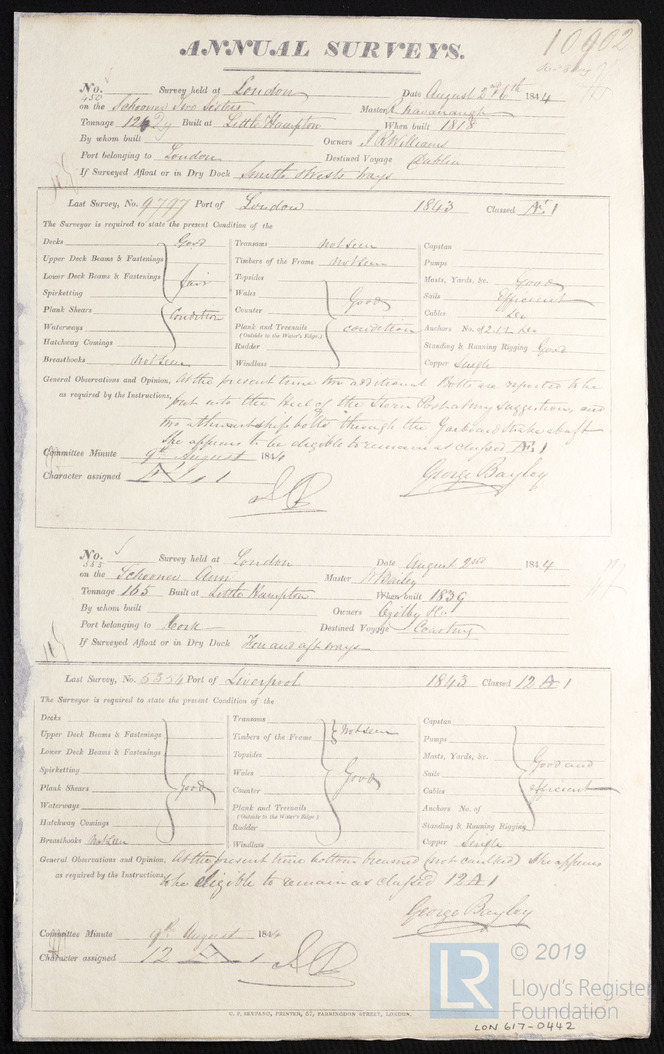 10902
ANNUAL SURVEYS.
No. 450 Survey held at London Date August 2nd 6th 1844
on the Schooner Two Sisters Master Kavanaugh
Tonnage 126 Built at Little Hampton When built 1818
By whom built Owners J R Williams
Port belonging to London Destined Voyage Dublin
If Surveyed Afloat or in Dry Dock Smiths ways
Last Survey, No. 9797 Port of London 1843 Classed Æ 1
The Surveyor is required to state the present Condition of the
Decks Good Transoms Not seen Capstan
Upper Deck Beams & Fastenings Timbers of the Frame Not seen Pumps
Lower Deck Beams & Fastenings Fair Topsides Masts, Yards, &c. Good
Spirketting Wales Good Sails Efficient
Plank Shears Condition Counter condition Cables Do
Waterways Plank and Treenails Anchors No. of 2.1.2 Do
(Outside to the Water's Edge.)
Hatchway Comings Rudder Standing & Running Rigging Good
Breasthooks Not seen Windlass Copper Single
General Observations and Opinion, At the present time two additional Bolts are reported to be
as required by the Instructions, put into the Heel of the Stern Post at my suggestion, and
two athwartship bolts through the Garboard Strake abaft
She appears to be eligible to remain as classed Æ 1
Committee Minute 9th August 1844
George Bayley
Character assigned Æ 1
No. 555 Survey held at London Date August 2nd 1844
on the Schooner Ann Master Bailey
Tonnage 165 Built at Little Hampton When built 1839
By whom built Owners Ogilby & Co
Port belonging to Cork Destined Voyage Coasting
If Surveyed Afloat or in Dry Dock Fore and aft ways
Last Survey, No. 5354 Port of Liverpool 1843 Classed 12 A 1
The Surveyor is required to state the present Condition of the
Decks Transoms Capstan
Upper Deck Beams & Fastenings Timbers of the Frame Not seen Pumps
Lower Deck Beams & Fastenings Topsides Masts, Yards, &c. Good and
Spirketting Wales Good Sails
Plank Shears Good Counter Cables efficient
Waterways Plank and Treenails Anchors No. of
(Outside to the Water's Edge.)
Hatchway Comings Rudder Standing & Running Rigging
Breasthooks Not seen Windlass Copper Single
General Observations and Opinion, At the present time bottom breamed (not caulked) She appears
as required by the Instructions, to be eligible to remain as classed 12 A 1
George Bayley
Committee Minute 9th August 1844
Character assigned 12 A 1
© 2019
LR Lloyd's Register
Foundation
G. F. SEYFANG, PRINTER, 57, FARRINGDON STREET, LONDON.
LON 617-0442